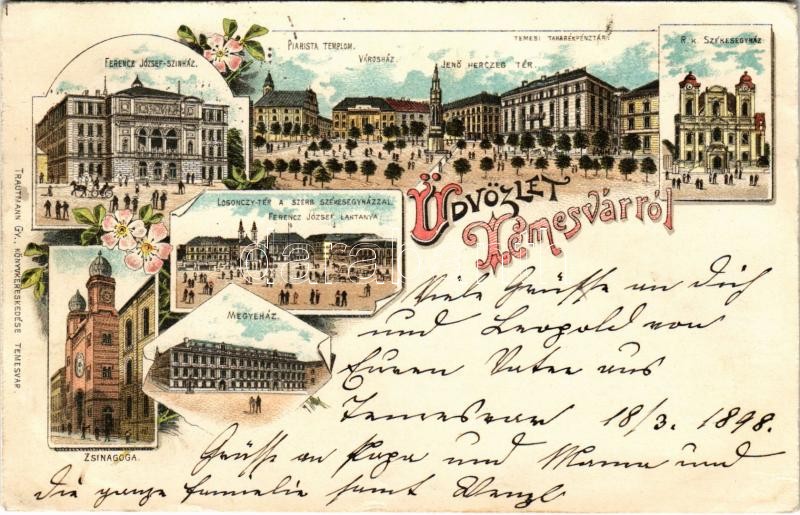 FERENCZ JÓZSEF-SZINHÁZ.
PIARISTA TEMPLOM.
VÁROSHÁZ.
JENŐ HERCZEG TÉR.
TEMESI TAKARÉKPÉNZTÁR.
R. K. SZÉKESEGYHÁZ.
LOSONCZY-TÉR A SZERB SZÉKESEGYHÁZZAL
FERENCZ JÓZSEF LAKTANYA
MEGYEHÁZ.
ZSINAGOGA.
TRAUTMANN GY., KÖNYVKERESKEDÉSE TEMESVÁR.
ÜDVÖZLET
TEMESVÁRRÓL
Viele Grüsse an Dich
und Leopold von
Euren Vater aus
Temesvar 18/3. 1898.
Grüsse an Papa und Mama und
die ganze Familie samt Wenzl